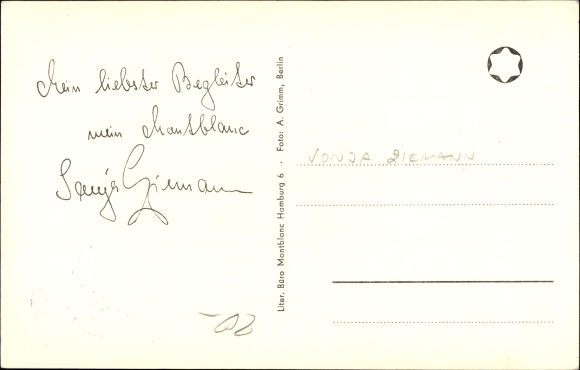 Mein liebster Begleiter
mein Montblanc
Sonja Ziemann
Liter. Büro Montblanc Hamburg 6 · Foto: A. Grimm, Berlin
SONJA ZIEMANN
20,-